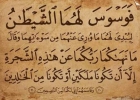 فَوَسْوَسَ لَهُمَا الشَّيْطَٰنُ
لِيُبْدِيَ لَهُمَا مَا وُۥرِيَ عَنْهُمَا مِن سَوْءَٰتِهِمَا وَقَالَ
مَا نَهَىٰكُمَا رَبُّكُمَا عَنْ هَٰذِهِ الشَّجَرَةِ
إِلَّآ أَن تَكُونَا مَلَكَيْنِ أَوْ تَكُونَا مِنَ الْخَٰلِدِينَ